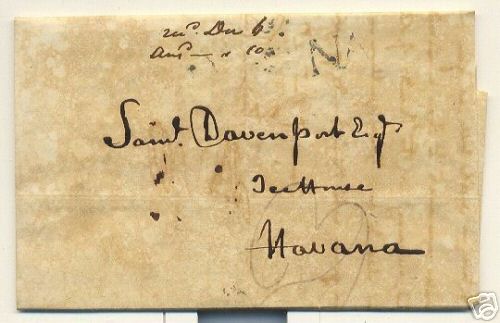 recd Dec 6.
Ansd " 10
N
Saml. Davenport Esqr
Ice House
Havana